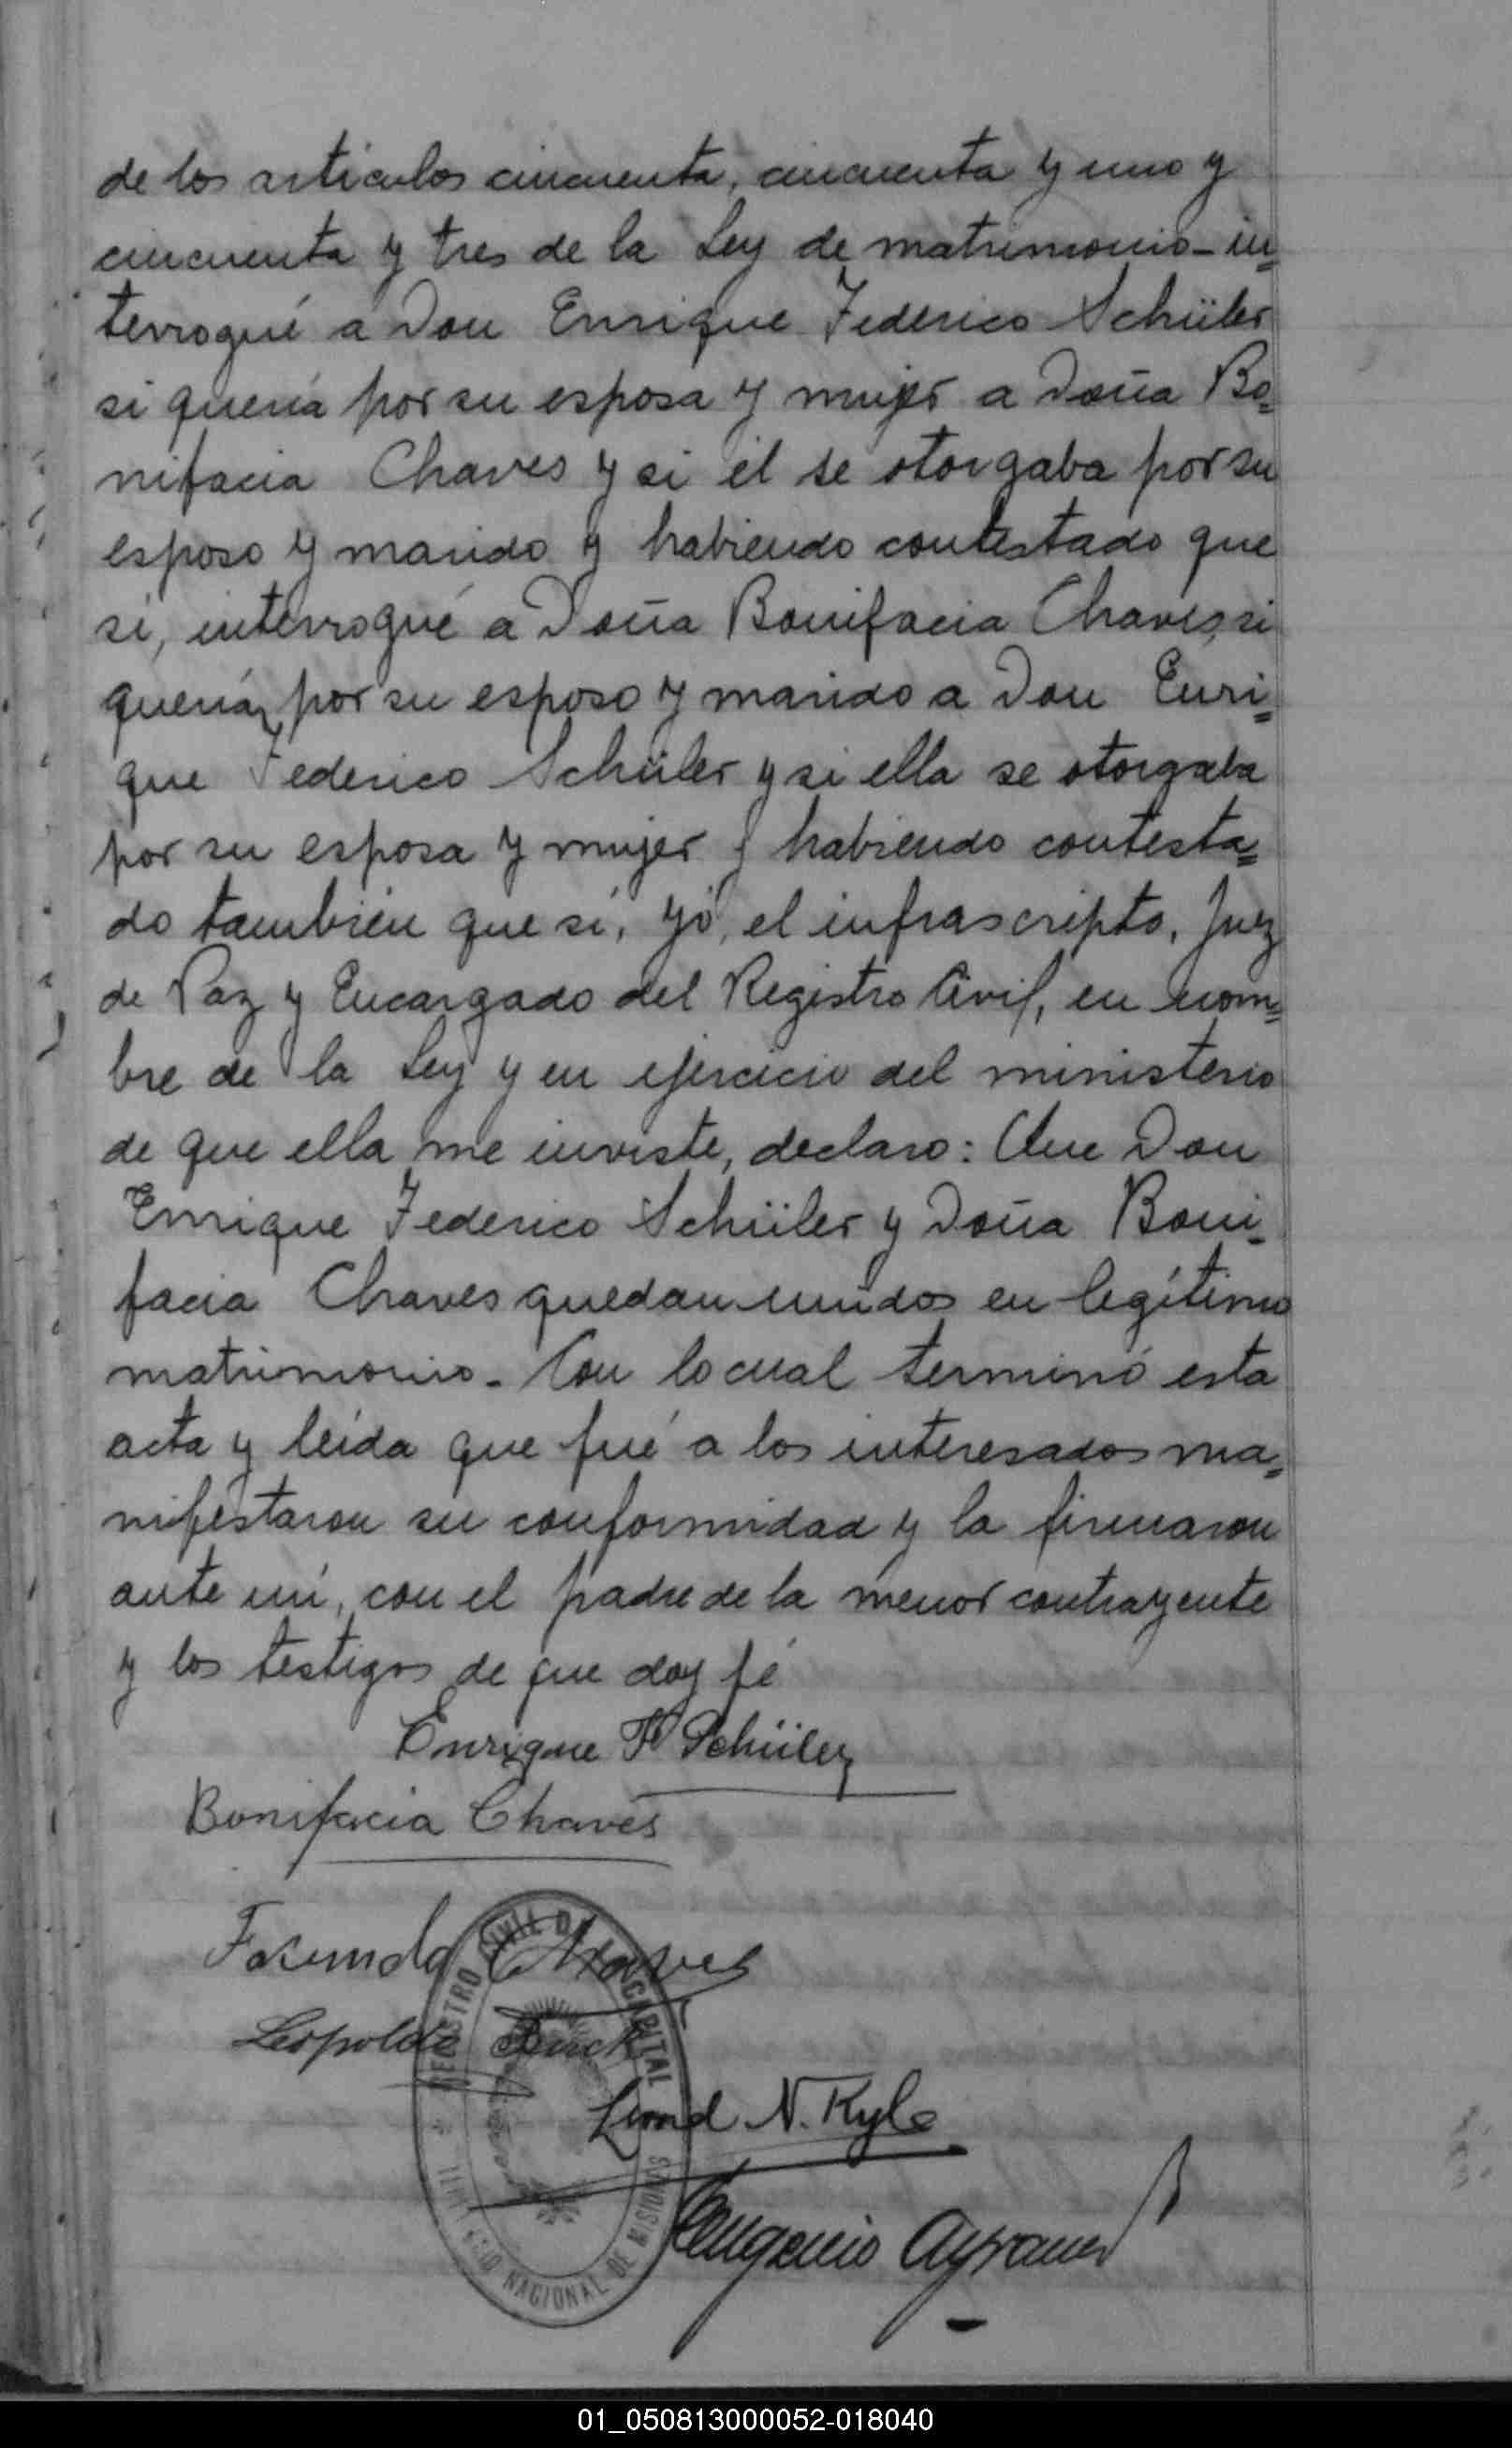 de los artículos cincuenta, cincuenta y uno y
cincuenta y tres de la Ley de matrimonio - in=
terrogué a Don Enrique Federico Schüler
si quería por su esposa y mujer a Doña Bo=
nifacia Chaves y si él se otorgaba por su
esposo y marido y habiendo contestado que
sí, interrogué a Doña Bonifacia Chaves, si
quería por su esposo y marido a Don Enri=
que Federico Schüler y si ella se otorgaba
por su esposa y mujer y habiendo contesta=
do también que sí, yó, el infrascripto, Juez
de Paz y Encargado del Registro Civil, en nom=
bre de la Ley y en ejercicio del ministerio
de que ella me inviste, declaro: Que Don
Enrique Federico Schüler y Doña Boni=
facia Chaves quedan unidos en legítimo
matrimonio. Con lo cual terminó esta
acta y leída que fué a los interesados ma=
nifestaron su conformidad y la firmaron
ante mí, con el padre de la menor contrayente
y los testigos de que doy fé
Enrique F Schüler
Bonifacia Chaves
Facundo Chaves
Leopoldo
N. Kyle
Eugenio
REGISTRO CIVIL DE LA CAPITAL
TERRITORIO NACIONAL DE MISIONES
01_050813000052-018040